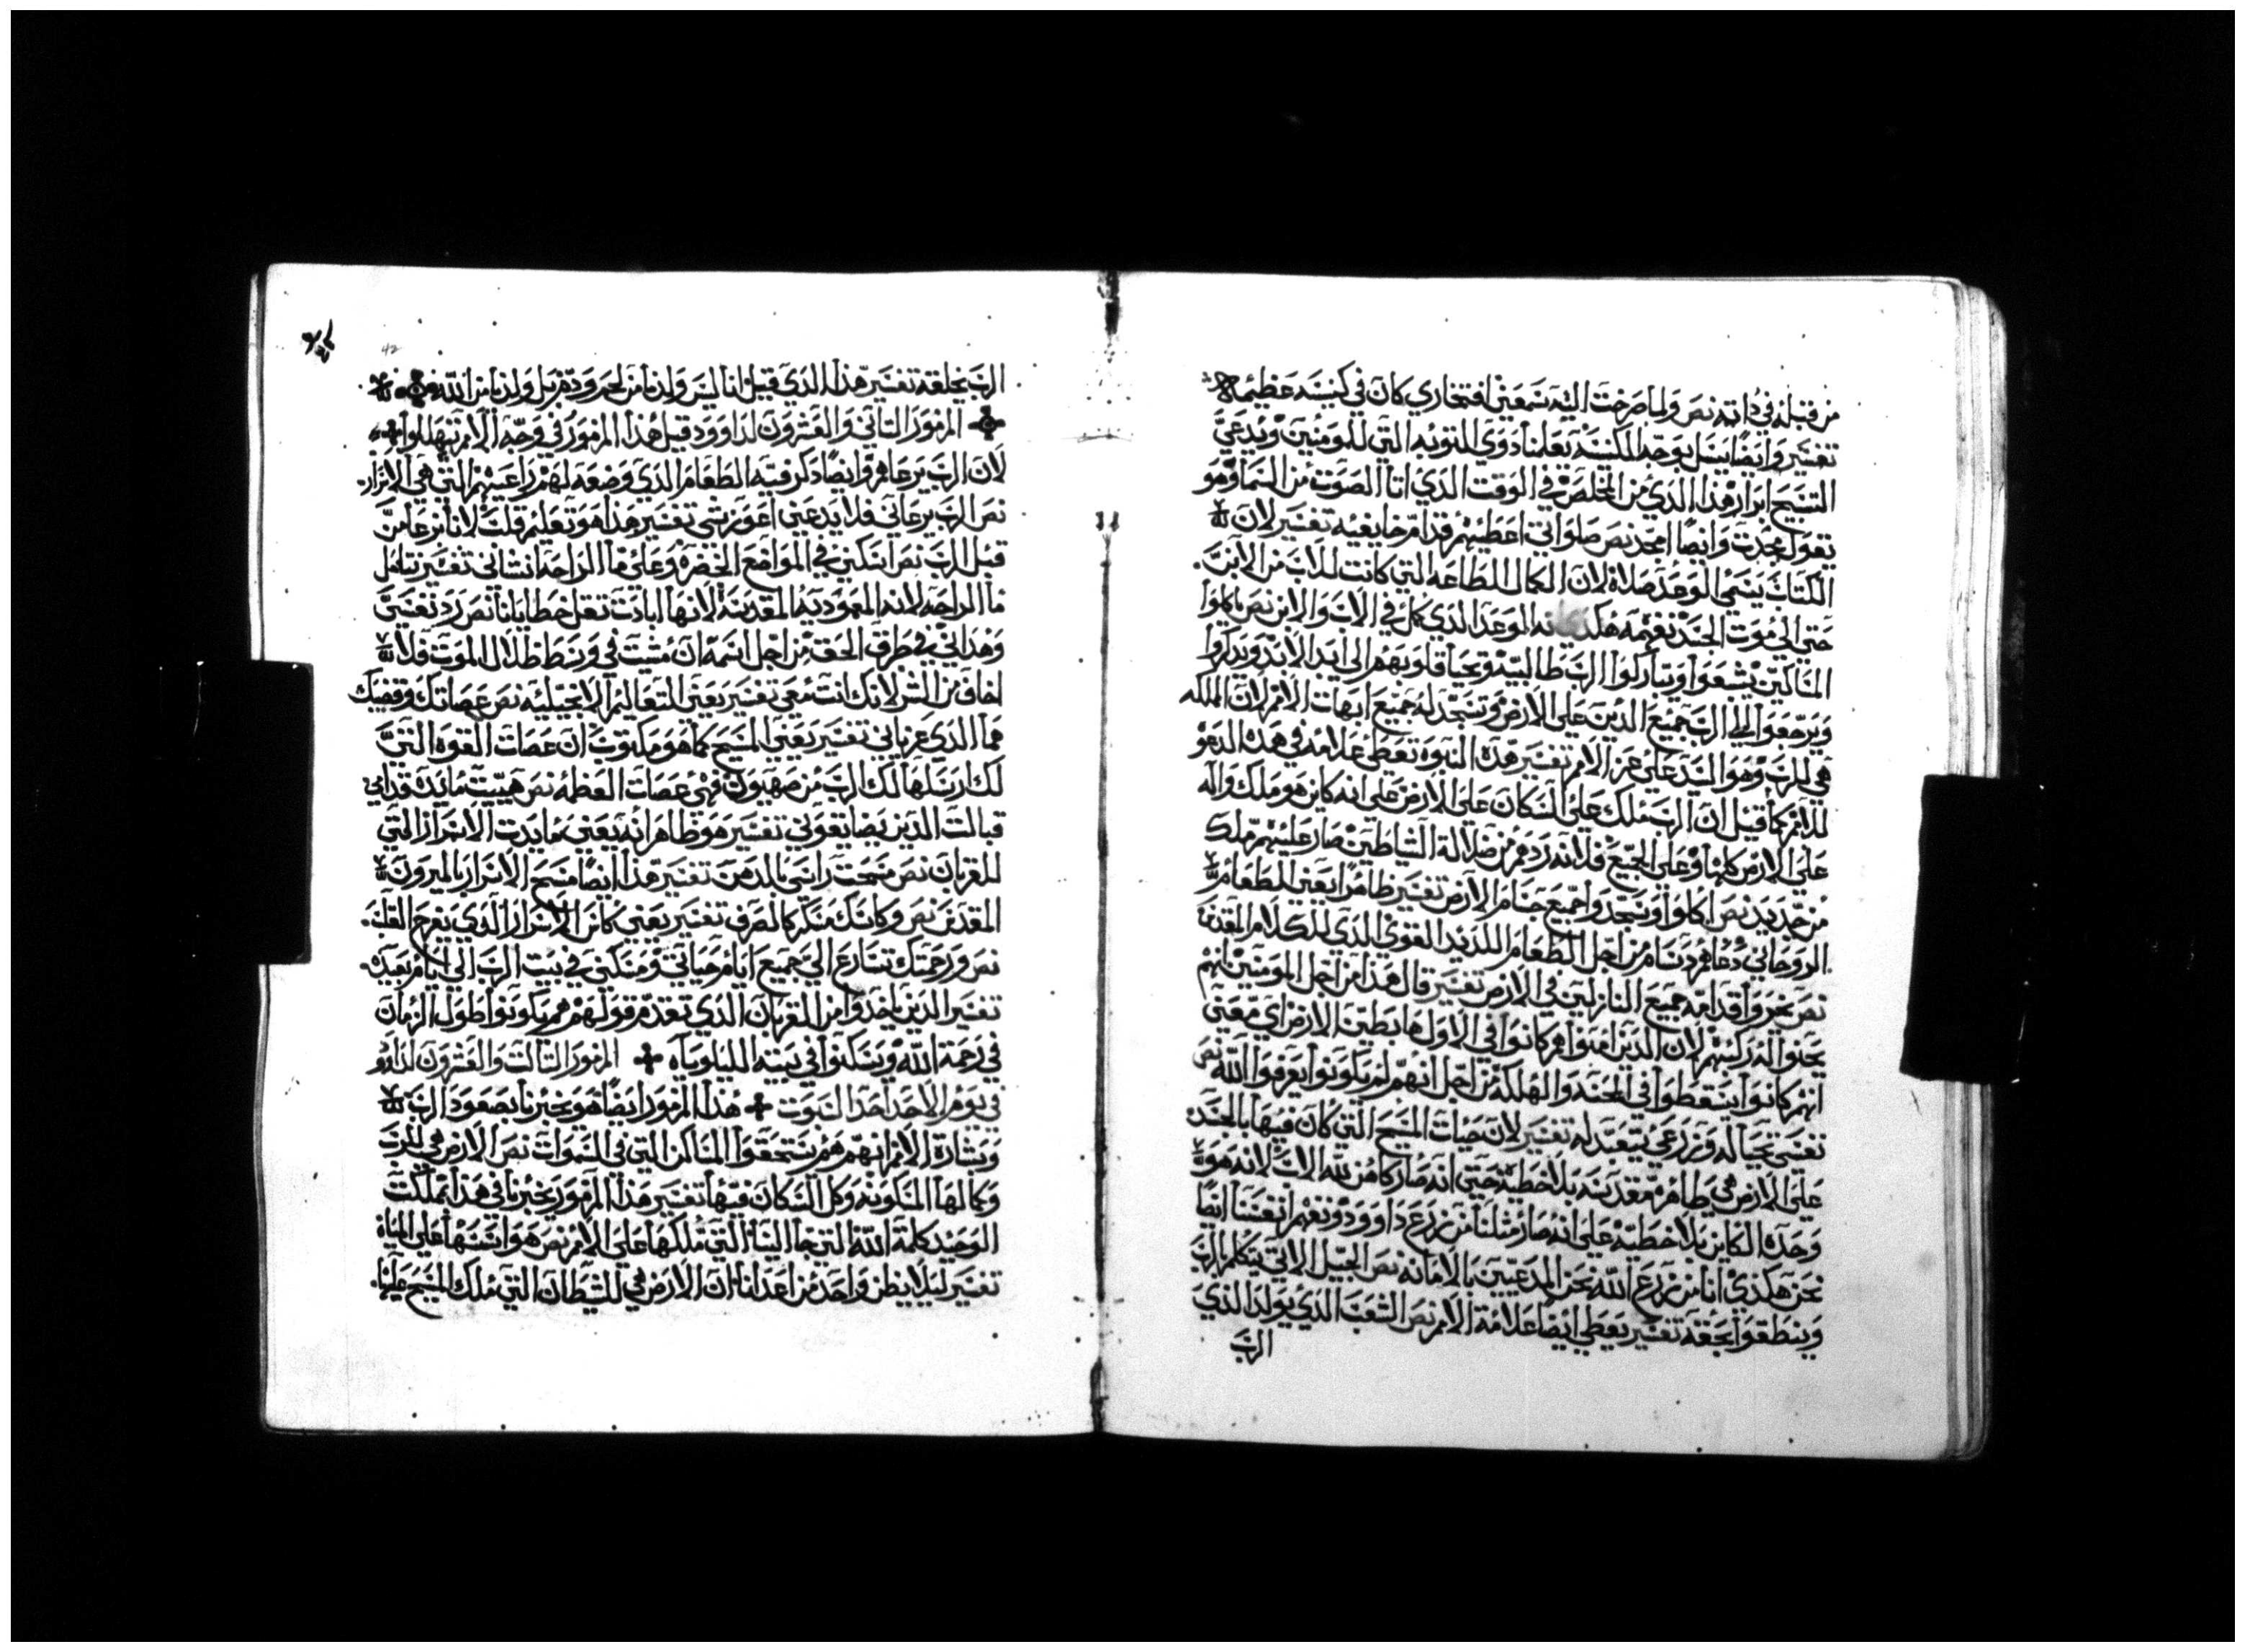 من قبله في داته نص ولما صرخت اليه سمعني افتخاري كان في كنيسه عظيمه
تفسير وايضا يسل بوجه الكنيسه تعلمنا دوي للتوبه التي للمومنين ويدعي
التسبيح ابرار هذا الدي من المخلص في الوقت الدي اتا الصوت من السما وهو
يقول مجدت وايضا امجد نص صلواتي اعطيهم قدام خايفيه تفسير لان
الكتاب يسمي الوعد صلاه لان الكمال للطاعه التي كانت للاب من الابن
حتى الي موت الجسد نعمه هكدي انه الوعد الدي كمل في الاب والابن نص ياكلوا
المساكين يشبعوا ويباركوا الرب طالبيه وتحيا قلوبهم الي ابد الابد ويدكروا
ويرجعوا الي الرب جميع الدين علي الارض وتسجد له جميع ابهات الامم لان الملكه
هي للرب وهو السيد علي عز الامم تفسير هده النبوه تعطي علامه في هده الدعو
للامم كما قيل ان الرب ملك علي السكان علي الارض علي انه كاين هو ملك واله
علي الارض كلها وعلي الجميع فلانه ردهم من ضلالة الشياطين صار عليهم ملك
من جديد نص اكلوا وسجدوا جميع حسام الارض تفسير ظاهرا يعني الطعام
الروحاني دعاهم دسامه من اجل الطعام اللديد القوي الدي للكلام المقدس
نص يخروا قدامه جميع النازلين في الارض تفسير قال هذا من اجل المومنين انهم
يحنوا له ركبهم لان الدين امنوا هم كانوا في الاول هابطين الارض اي معني
انهم كانوا يسقطوا في المحنه والهلكه من اجل انهم لم يكونوا يعرفوا الله نص
نفسي تحيا له وزرعي يتعبد له تفسير لان حيات المسيح التي كان فيها بالجسد
علي الارض هي طاهره مقدسه بلا خطيه حتى انه صار كا من لله الاب لانه هو
وحده الكاين بلا خطيه علي انه صار مثلنا من زرع داوود ونفهم انفسنا ايضا
نحن هكدي اننا من زرع الله نحن المدعيين بالامانه نص الجيل الاتي يتكلم بالرب
وينطقوا بحقه تفسير يعطي ايضا علامة الامم نص الشعب الدي يولد الدي
الرب
42
الرب يخلقه تفسير هذا الدي قيل اننا ليس ولدنا من لحم ودم بل ولدنا من الله
المزمور التاني والعشرون لداوود قيل هذا المزمور في وجه الامم تيهللوا
لان الرب يرعاهم وايضا دكر فيه الطعام الدي وضعه لهم راعيهم التي هي الاسرار
نص الرب يرعاني فلا يدعني اعوز شي تفسير هذا هو تعليم قلت لاننا نرعا من
قبل الرب نص اسكني في المواضع الخضره وعلي ما الراحه انشاني تفسير تتامل
ما الراحه لانه المعموديه المقدسه لانها ابادت تقل خطايانا نص رد نفسي
وهداني في طرق الحق من اجل اسمه ان مشيت في وسط ظلال الموت فلا
اخاف من الشر لانك انت معي تفسير يعني التعاليم الانجيليه نص عصاتك وقضيبك
هما الدي عزياني تفسير يعني المسيح كما هو مكتوب ان عصات القوه التي
لك ارسلها لك الرب من صهيون فهي عصات العظمه نص هييت مايده قدامي
قبالت الدين يضايقوني تفسير هو ظاهر انه يعني بمايدت الاسرار التي
للقربان نص مسحت راسي بالدهن تفسير هذا ايضا مسح الاسرار بالميرون
المقدس نص وكاسك مسكر كالصرف تفسير يعني كاس الاسرار الدي يفرح القلب
نص ورحمتك تسارع الي جميع ايام حياتي ومسكني في بيت الرب الي ايام بعيده
تفسير الدين ياخدوا من القربان الدي تقدم قولهم هم يكونوا طول الزمان
في رحمة الله ويسكنوا في بيته الليلوياه المزمور التالت والعشرون لداوو
في يوم الاحد احد السبوت هذا المزمور ايضا هو يخبرنا بصعود الرب
وبشارة الامم انهم هم يستحقوا المساكن التي في السموات نص الارض هي للرب
وكمالها المسكونه وكل السكان فيها تفسير هذا المزمور يخبرنا في هذا بملكت
الوحيد كلمة الله التي جا الينا التي ملكها علي الامم نص هو اسسها علي المياه
تفسير ليلا يظن واحد من اعدانا ان الارض هي للشيطان التي ملك المسيح عليها